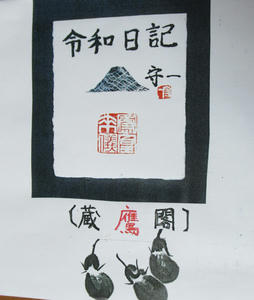 令和日記
守一
〔蔵鷹閣〕